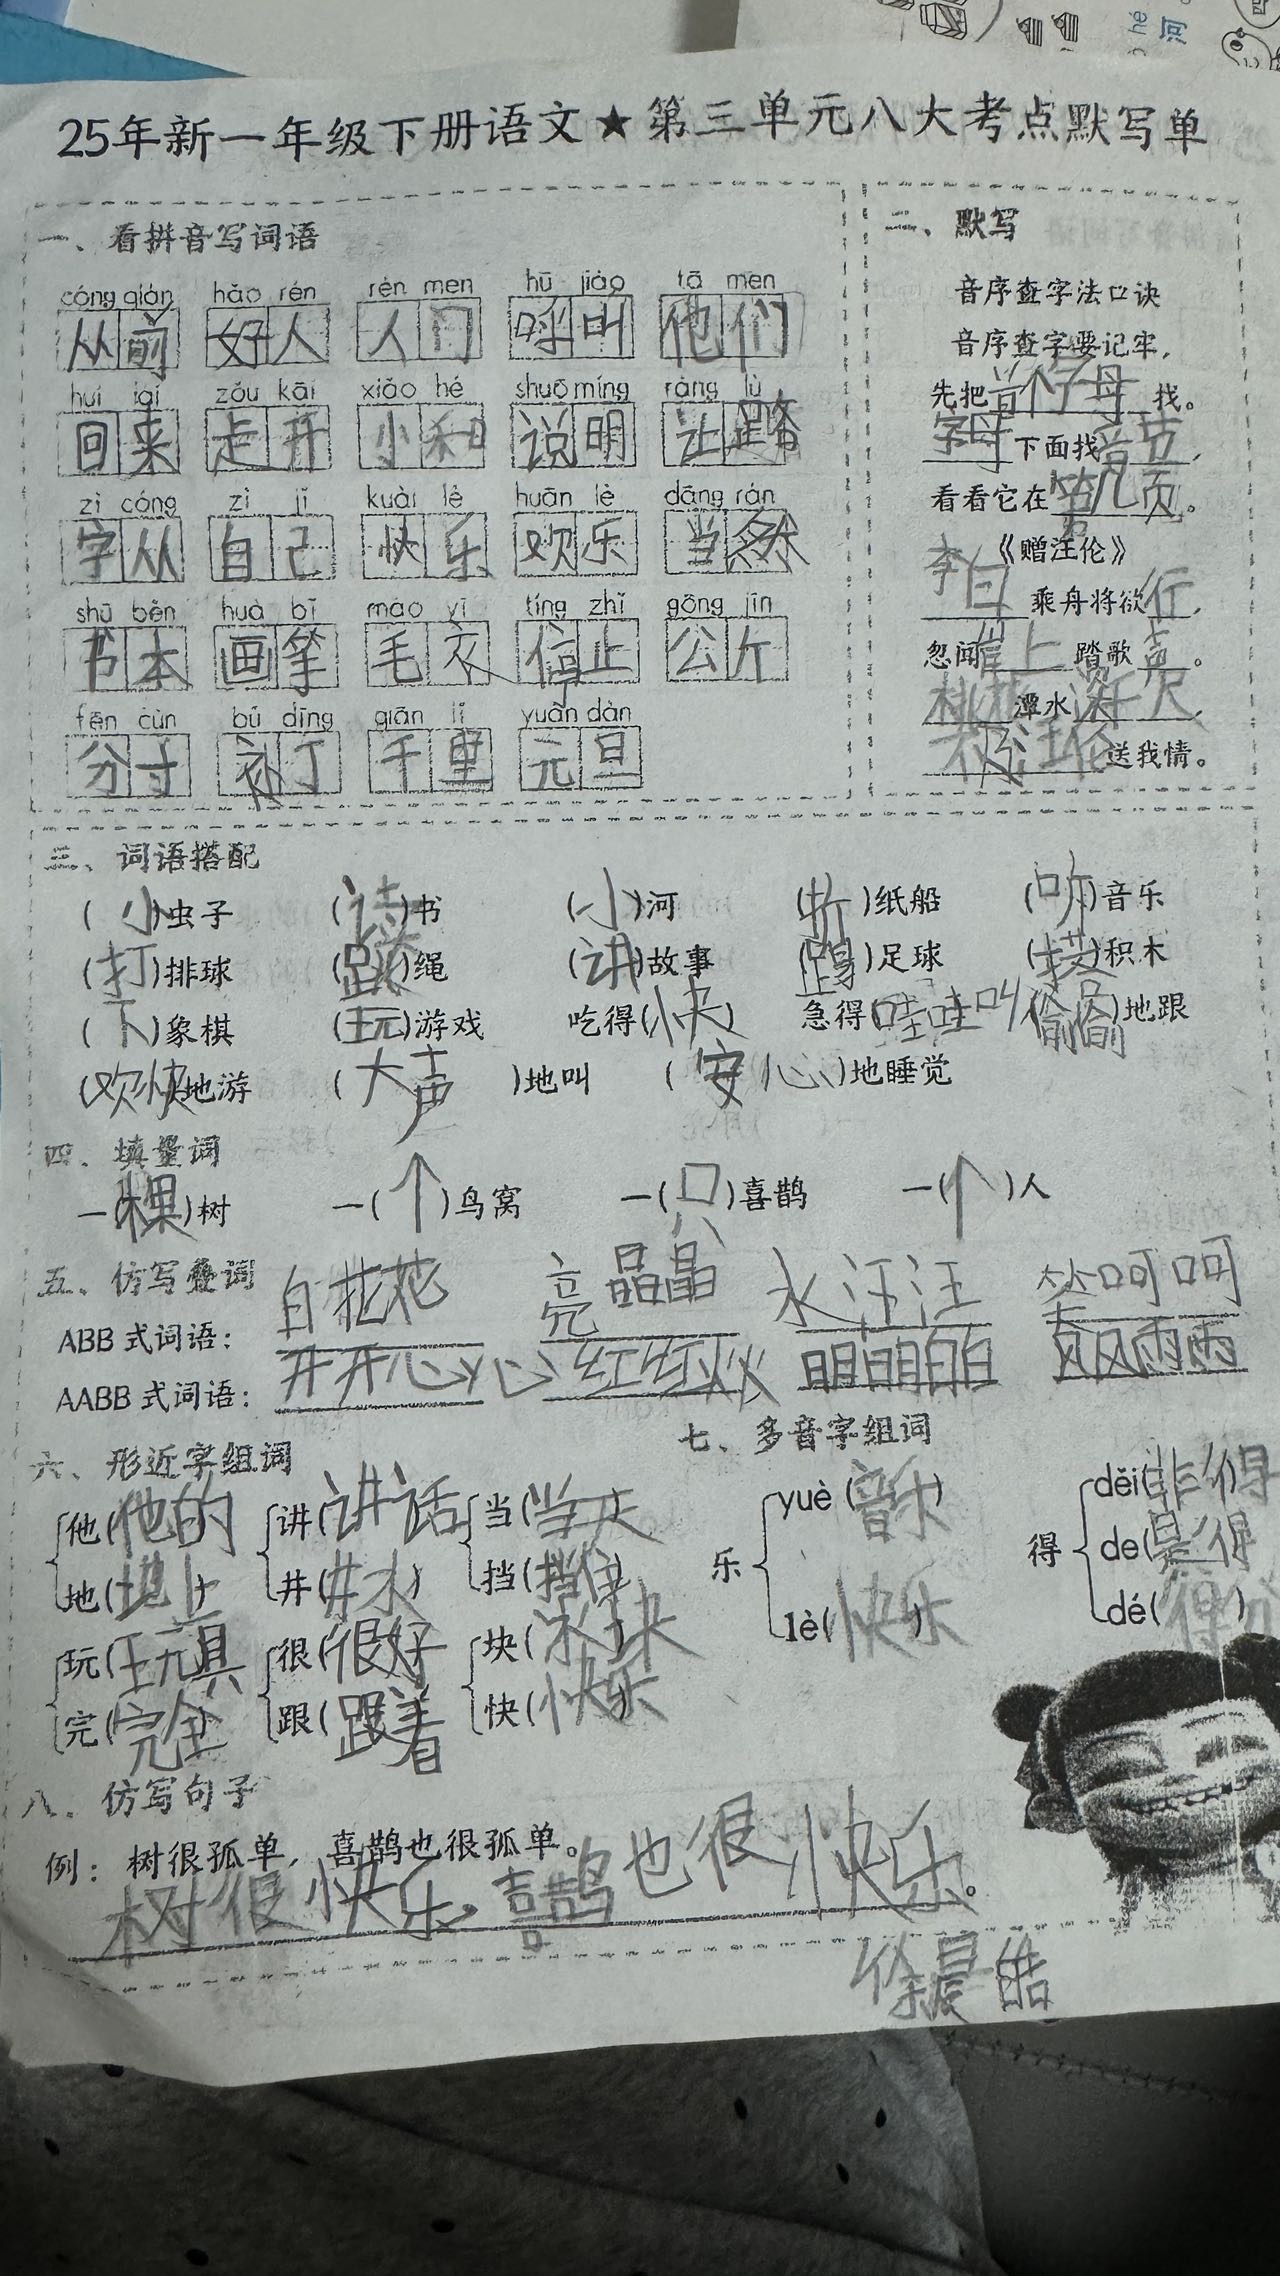 25年新一年级下册语文★第三单元八大考点默写单
一、看拼音写词语
cóng qián hǎo rén rén men hū jiào tā men
从前 好人 人门 呼叫 他们
huí lái zǒu kāi xiǎo hé shuō míng ràng lù
回来 走开 小和 说明 让路
zì cóng zì jǐ kuài lè huān lè dāng rán
字从 自己 快乐 欢乐 当然
shū běn huà bǐ máo yī tíng zhǐ gōng jīn
书本 画笔 毛衣 停止 公斤
fēn cùn bǔ dīng qiān lǐ yuán dàn
分寸 补丁 千里 元旦
二、默写
音序查字法口诀
音序查字要记牢，
先把首个字母找。
字母下面找音节，
看看它在第几页。
《赠汪伦》
李白乘舟将欲行，
忽闻岸上踏歌声。
桃花潭水深千尺，
不及汪伦送我情。
三、词语搭配
(小)虫子 (读)书 (小)河 (折)纸船 (听)音乐
(打)排球 (跳)绳 (讲)故事 (踢)足球 (搭)积木
(下)象棋 (玩)游戏 吃得(快) 急得(哇哇叫) (偷偷)地跟
(欢快)地游 (大声)地叫 (安心)地睡觉
四、填量词
一(棵)树 一(个)鸟窝 一(只)喜鹊 一(个)人
五、仿写叠词
ABB式词语：白花花 亮晶晶 水汪汪 笑呵呵
AABB式词语：开开心心 红红火火 明明白白 风风雨雨
六、形近字组词
他(他的) 讲(讲话) 当(当天)
地(地上) 井(井水) 挡(挡住)
玩(玩具) 很(很好) 块(冰块)
完(完全) 跟(跟着) 快(快乐)
七、多音字组词
乐 yuè(音乐) lè(快乐)
得 děi(非得) de(觉得) dé(得分)
八、仿写句子
例：树很孤单，喜鹊也很孤单。
树很快乐，喜鹊也很快乐。
徐晨皓